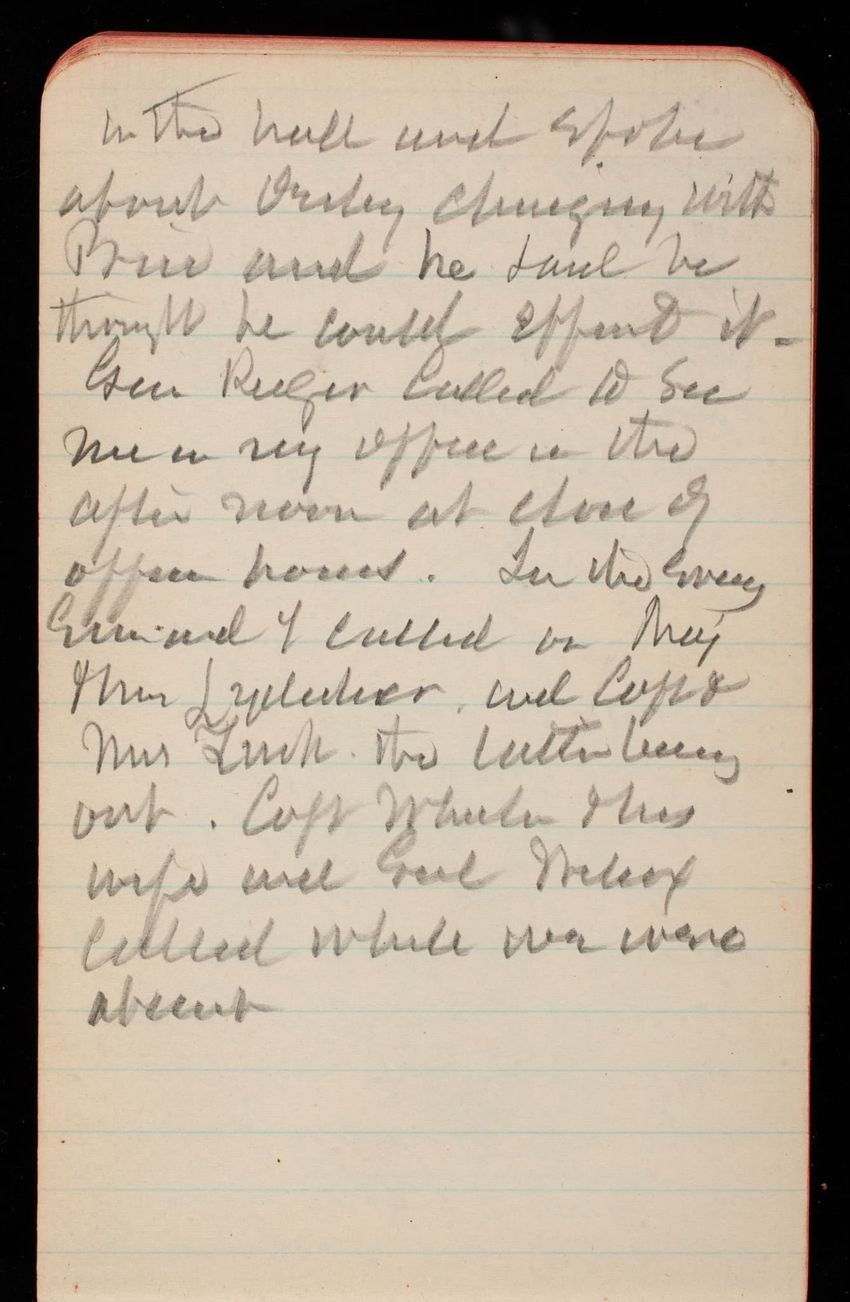 in the hall and spoke
about Ovaley changing with
Price and he said he
thought he could effect it -
Gen Ruger called to see
me in my office in the
after noon at close of
office hours. In the evening
Emma and I called on Maj
& Mrs Lydecker, and Capt &
Mrs Lusk. the latter being
out. Capt Wheeler & his
wife and Genl Wilcox
called while we were
absent